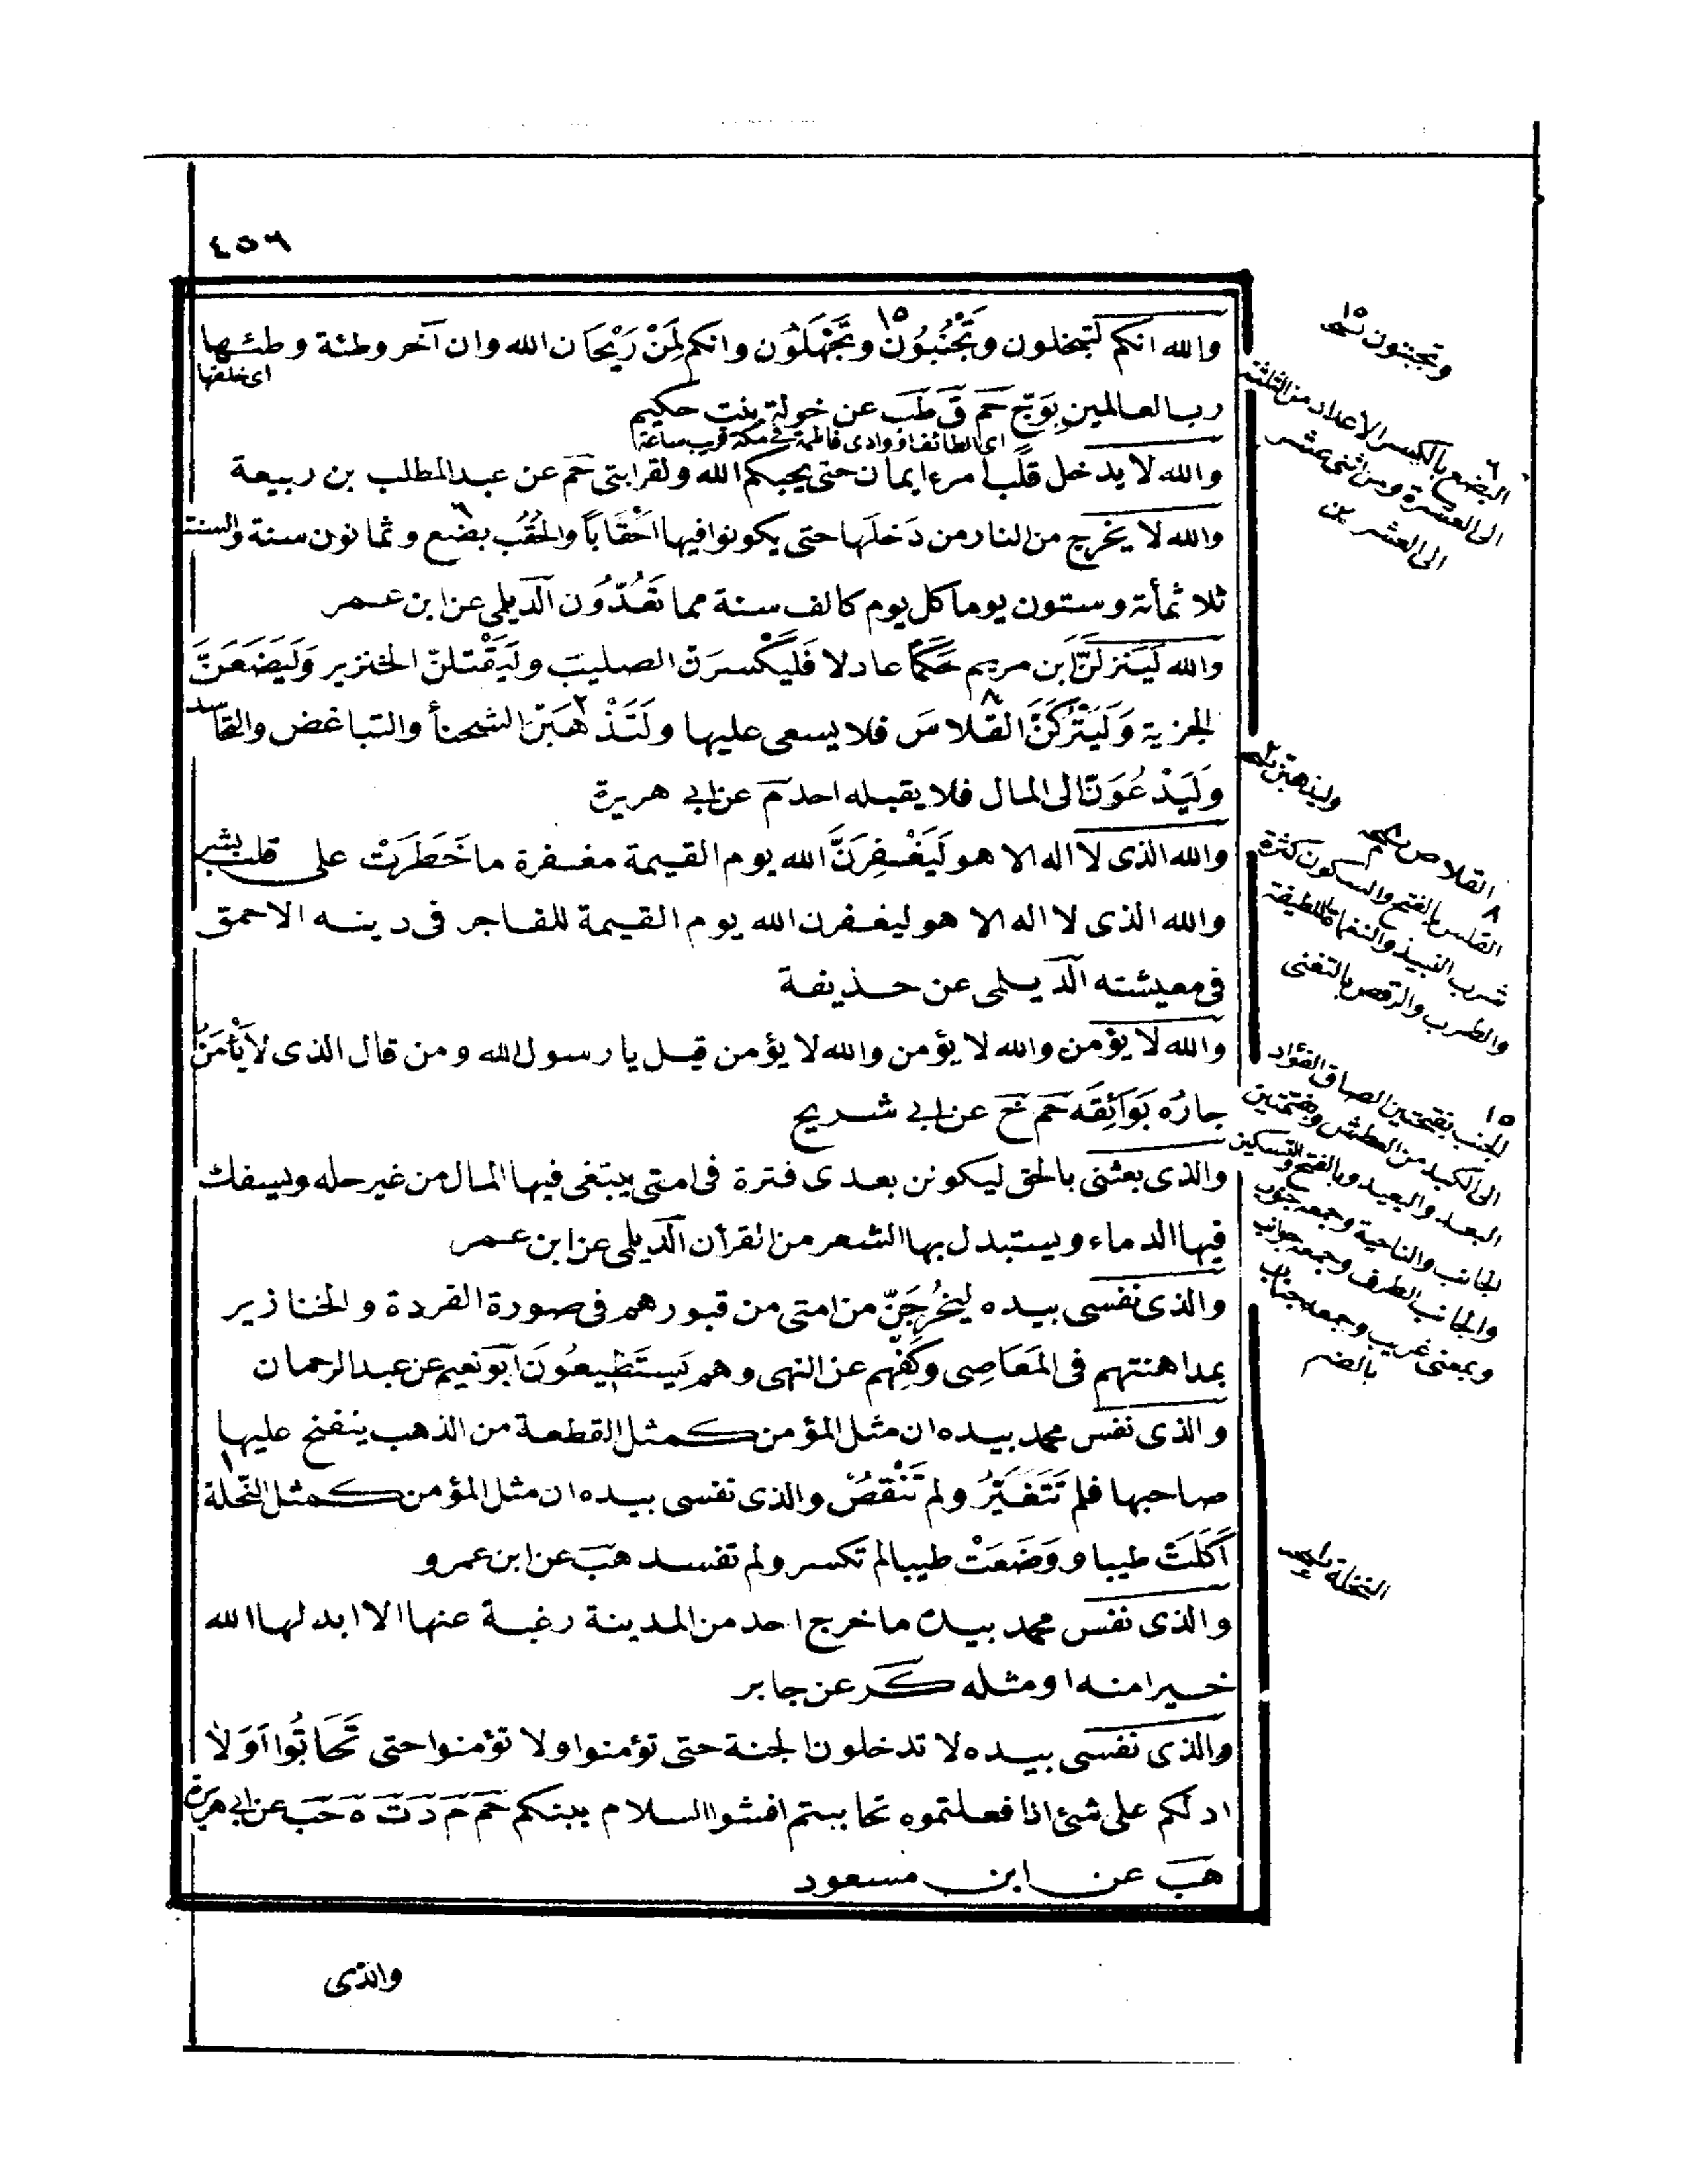 ٤٥٦
والله انكم لتبخلون وَتَجْنُبُونَ وتَجْهَلَوْن وانكم لَمِنْ رَيْحَان الله وان آخر وطئة وطئها
اى خلقها
رب العالمين بِوَجّ حَم قَ طَب عن خولة بنت حكيم
اى الطائف او وادى فاطمة فى مكة قرب ساعة
والله لا يدخل قَلْبَ امرء ايمان حتى يحبكم الله ولقرابتى حَم عن عبد المطلب بن ربيعة
والله لا يخرج من النار من دَخلَها حتى يكونوا فيها اَحْقَاباً والحُقُب بضع وثمانون سنة والسنة
ثلاثمأة وستون يوما كل يوم كالف سنة مما تَعُدُّوُن الدَيلى عن ابن عمر
والله لَيَنزلَنَّ ابن مريم حَكَماً عادلا فَلَيكْسرَنّ الصليبَ ولَيَقْتلنّ الخنزير وَلَيضَعَنَّ
الجزية وَلَيَتْرُكَنَّ القلاسَ فلا يسعى عليها ولَتَذْهَبَنّ الشحنأ والتباغض والتحاسد
وَلَيَدْعُوَنّ الى المال فلا يقبله احد مَ عن ابى هريرة
والله الذى لا اله الا هو لَيَغْفِرَنَّ الله يوم القيمة مغفرة ما خَطَرَتْ على قلب بشر
والله الذى لا اله الا هو ليغفرن الله يوم القيمة للفاجر فى دينه الاحمق
فى معيشته الدَيلمى عن حذيفة
والله لا يؤمن والله لا يؤمن والله لا يؤمن قيل يا رسول الله ومن قال الذى لا يَأْمَنُ
جارُه بَوَائِقَه حَم خَ عن ابى شريح
والذى بعثنى بالحق ليكونن بعدى فترة فى امتى يبتغى فيها المال من غير حله ويسفك
فيها الدماء ويستبدل بها الشعر من القرأن الدَيلى عن ابن عمر
والذى نفسى بيده ليَخْرُجَنّ من امتى من قبورهم فى صورة القردة والخنازير
بمداهنتهم فى المَعَاصِى وكَفِّهم عن النهى وهم يَستَطِيعُونَ ابَونعيم عن عبد الرحمان
والذى نفس محمد بيده ان مثل المؤمن كمثل القطعة من الذهب ينفخ عليها
صاحبها فلم تَتَغَيَّرُ ولم تَنْقُصْ والذى نفسى بيده ان مثل المؤمن كمثل النَّحلة
اَكَلَتْ طيبا ووَضَعَتْ طيبا لم تكسر ولم تفسد هَبَ عن ابن عمرو
والذى نفس محمد بيده ما خرج احد من المدينة رغبة عنها الا ابدلها الله
خيرا منه او مثله كَر عن جابر
والذى نفسى بيده لا تدخلون الجنة حتى تؤمنوا ولا تؤمنوا حتى تَحَابُّوا اَوَلا
ادلكم على شئ اذا فعلتموه تحاببتم افشوا السلام بينكم حَم مَ دَ تَ ه حَب عن ابى هريرة
هَبَ عن ابن مسعود
والذى
وتجبنون نسخه ١٥
٦ البضع بالكسر الاعداد من الثلثة
الى العشرة ومن اثنى عشر
الى العشرين
وليذهبن نسخه ٢
القلاص نسخه ٨
٨ القلس بالفتح والسكون كثرة
شرب النبيذ والنغا باللطيفة
والطرب والرقص بالتغنى
١٥ الجنب بفتحتين الصاق الفؤاد
الى الكبد من العطش وبضمتين
البعد والبعيد وبالفتح والتسكين
الجانب والناحية وجمعه جنوب
والجانب الطرف وجمعه جوانب
وبمعنى غريب وجمعه جناب
بالضم
النخلة نسخه ١